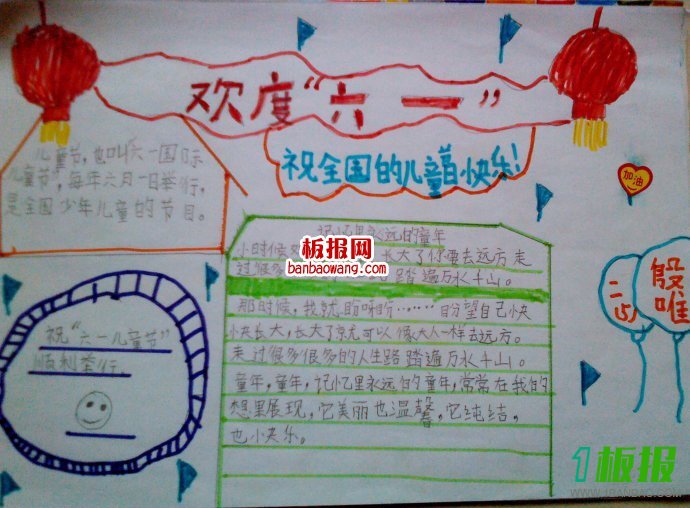 欢度“六一”
祝全国的儿童节快乐!
儿童节,也叫六一国际
儿童节,每年六月一日举行,
是全国少年儿童的节目。
加油
记忆里永远的童年
小时候
长大了你要去远方走
过很多
踏遍万水千山。
板报网
banbaowang.com
那时候,我就盼呀盼……盼望自己快
快长大,长大了就可以像大人一样去远方。
走过很多很多的人生路踏遍万水千山。
童年,童年,记忆里永远的童年,常常在我的
想里展现,它美丽也温馨,它纯结,
也快乐。
祝“六一儿童节”
顺利举行。
二
唯
1板报
WWW.1BANBAO.COM